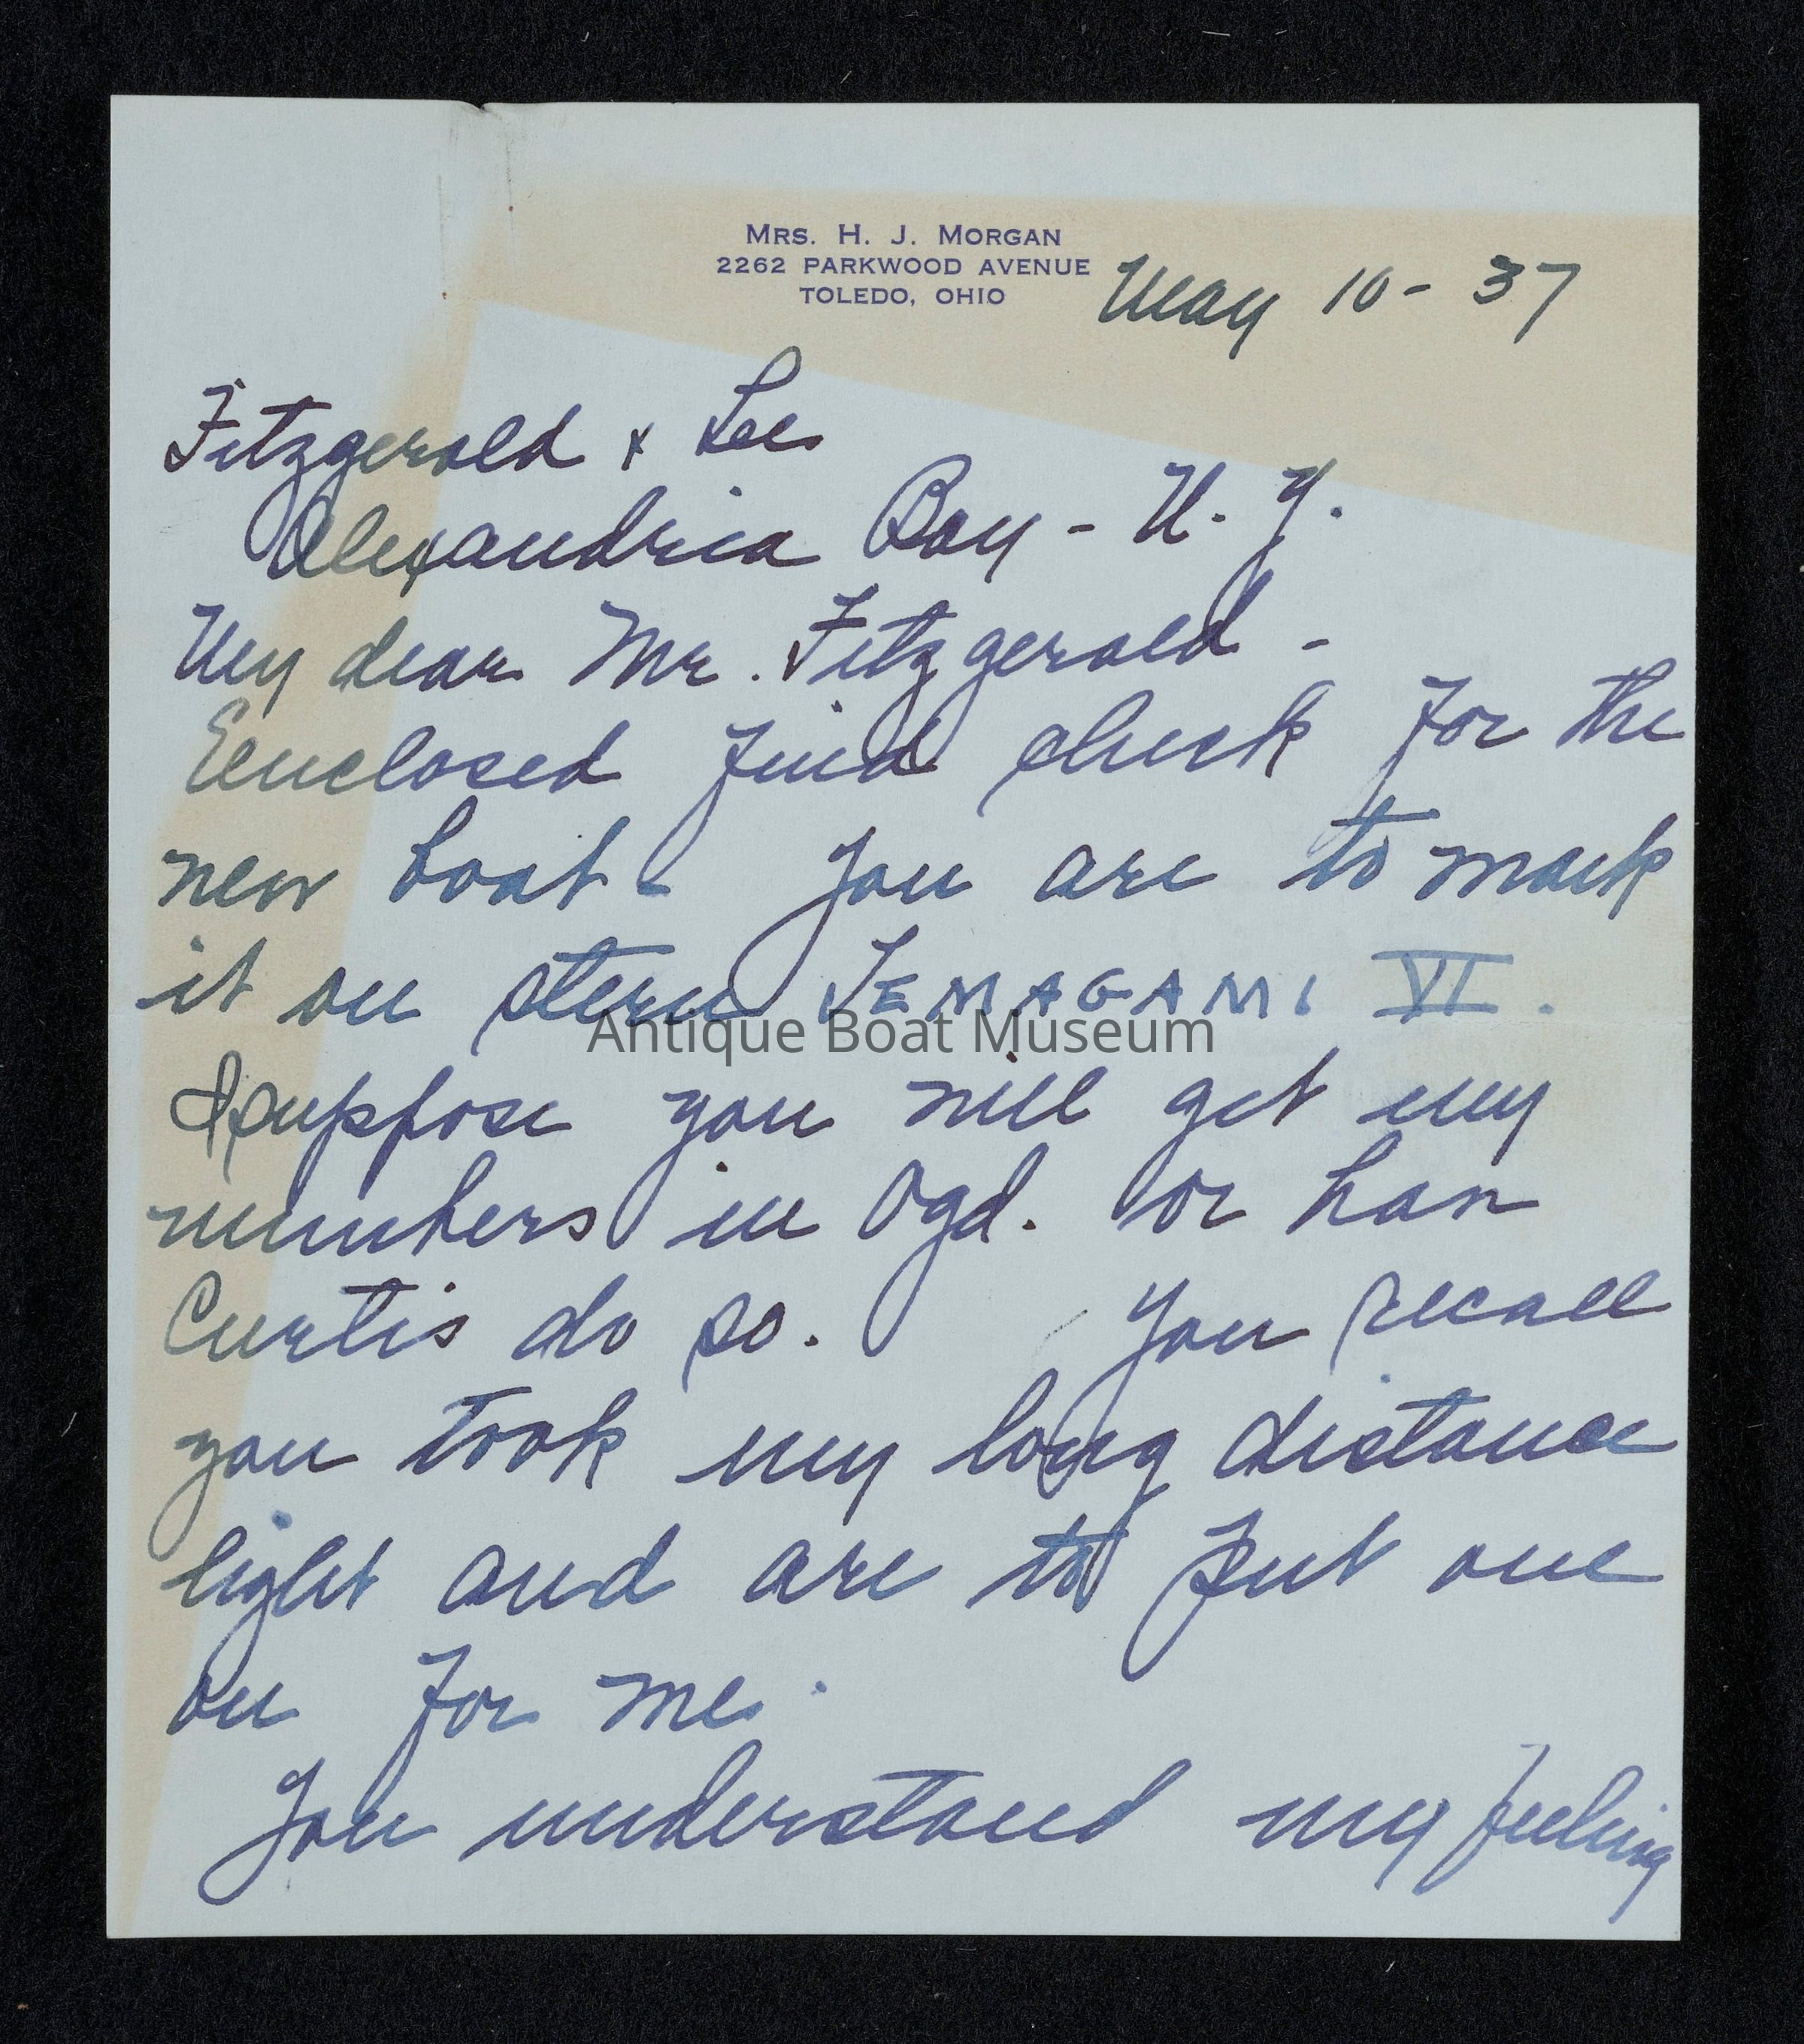 MRS. H. J. MORGAN
2262 PARKWOOD AVENUE
TOLEDO, OHIO
May 10 - 37
Fitzgerald & Lee
Alexandria Bay - N. Y.
My dear Mr. Fitzgerald -
Enclosed find check for the
new boat - You are to mark
it on stern TEMAGAMI VI.
Antique Boat Museum
I suppose you will get my
numbers in Ogd. or have
Curtis do so. You recall
you took my long distance
light and are to put one
on for me.
You understand my feeling